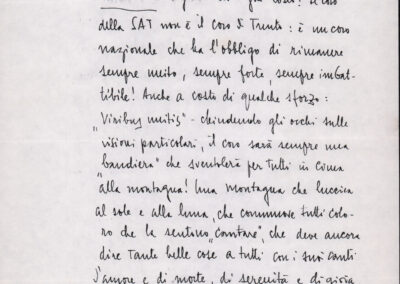 della SAT non è il coro di Trento: è un coro
nazionale che ha l'obbligo di rimanere
sempre unito, sempre forte, sempre imbat-
tibile! Anche a costo di qualche sforzo:
"Viribus unitis" - chiudendo gli occhi sulle
"visioni particolari, il coro sarà sempre una
"bandiera" che sventolerà per tutti in cima
"alla montagna! Una montagna che luccica
al sole e alla luna, che commuove tutti colo-
ro che la sentono "cantare", che deve ancora
dire tante belle cose a tutti con i suoi canti
d'amore e di morte, di serenità e di gioia